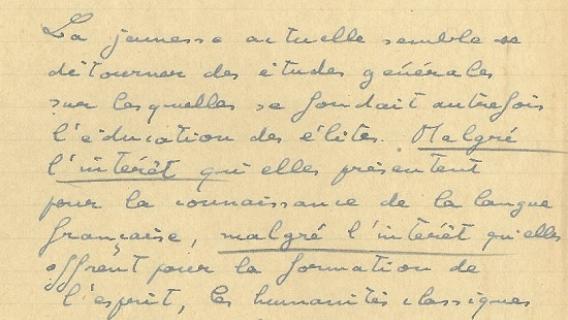 La jeunesse actuelle semble se
détourner des études générales
sur lesquelles se fondait autrefois
l'éducation des élites. Malgré
l'intérêt qu'elles présentent
pour la connaissance de la langue
française, malgré l'intérêt qu'elles
offrent pour la formation de
l'esprit, les humanités classiques